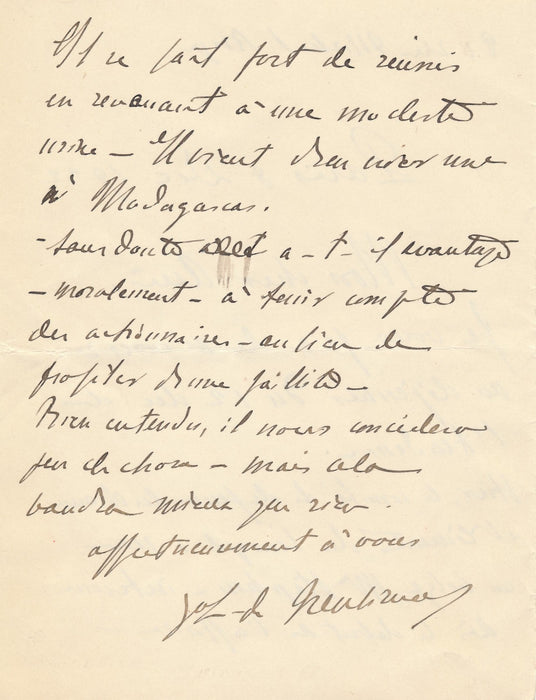 Il se fait fort de réussir
en revenant à une modeste
usine — Il vient d'en créer une
à Madagascar.
- Sans doute a-t-il avantage
- moralement - à tenir compte
des actionnaires - au lieu de
profiter d'une faillite -
Bien entendu, il nous concédera
peu de chose - mais cela
vaudra mieux que rien.
affectueusement à vous
de